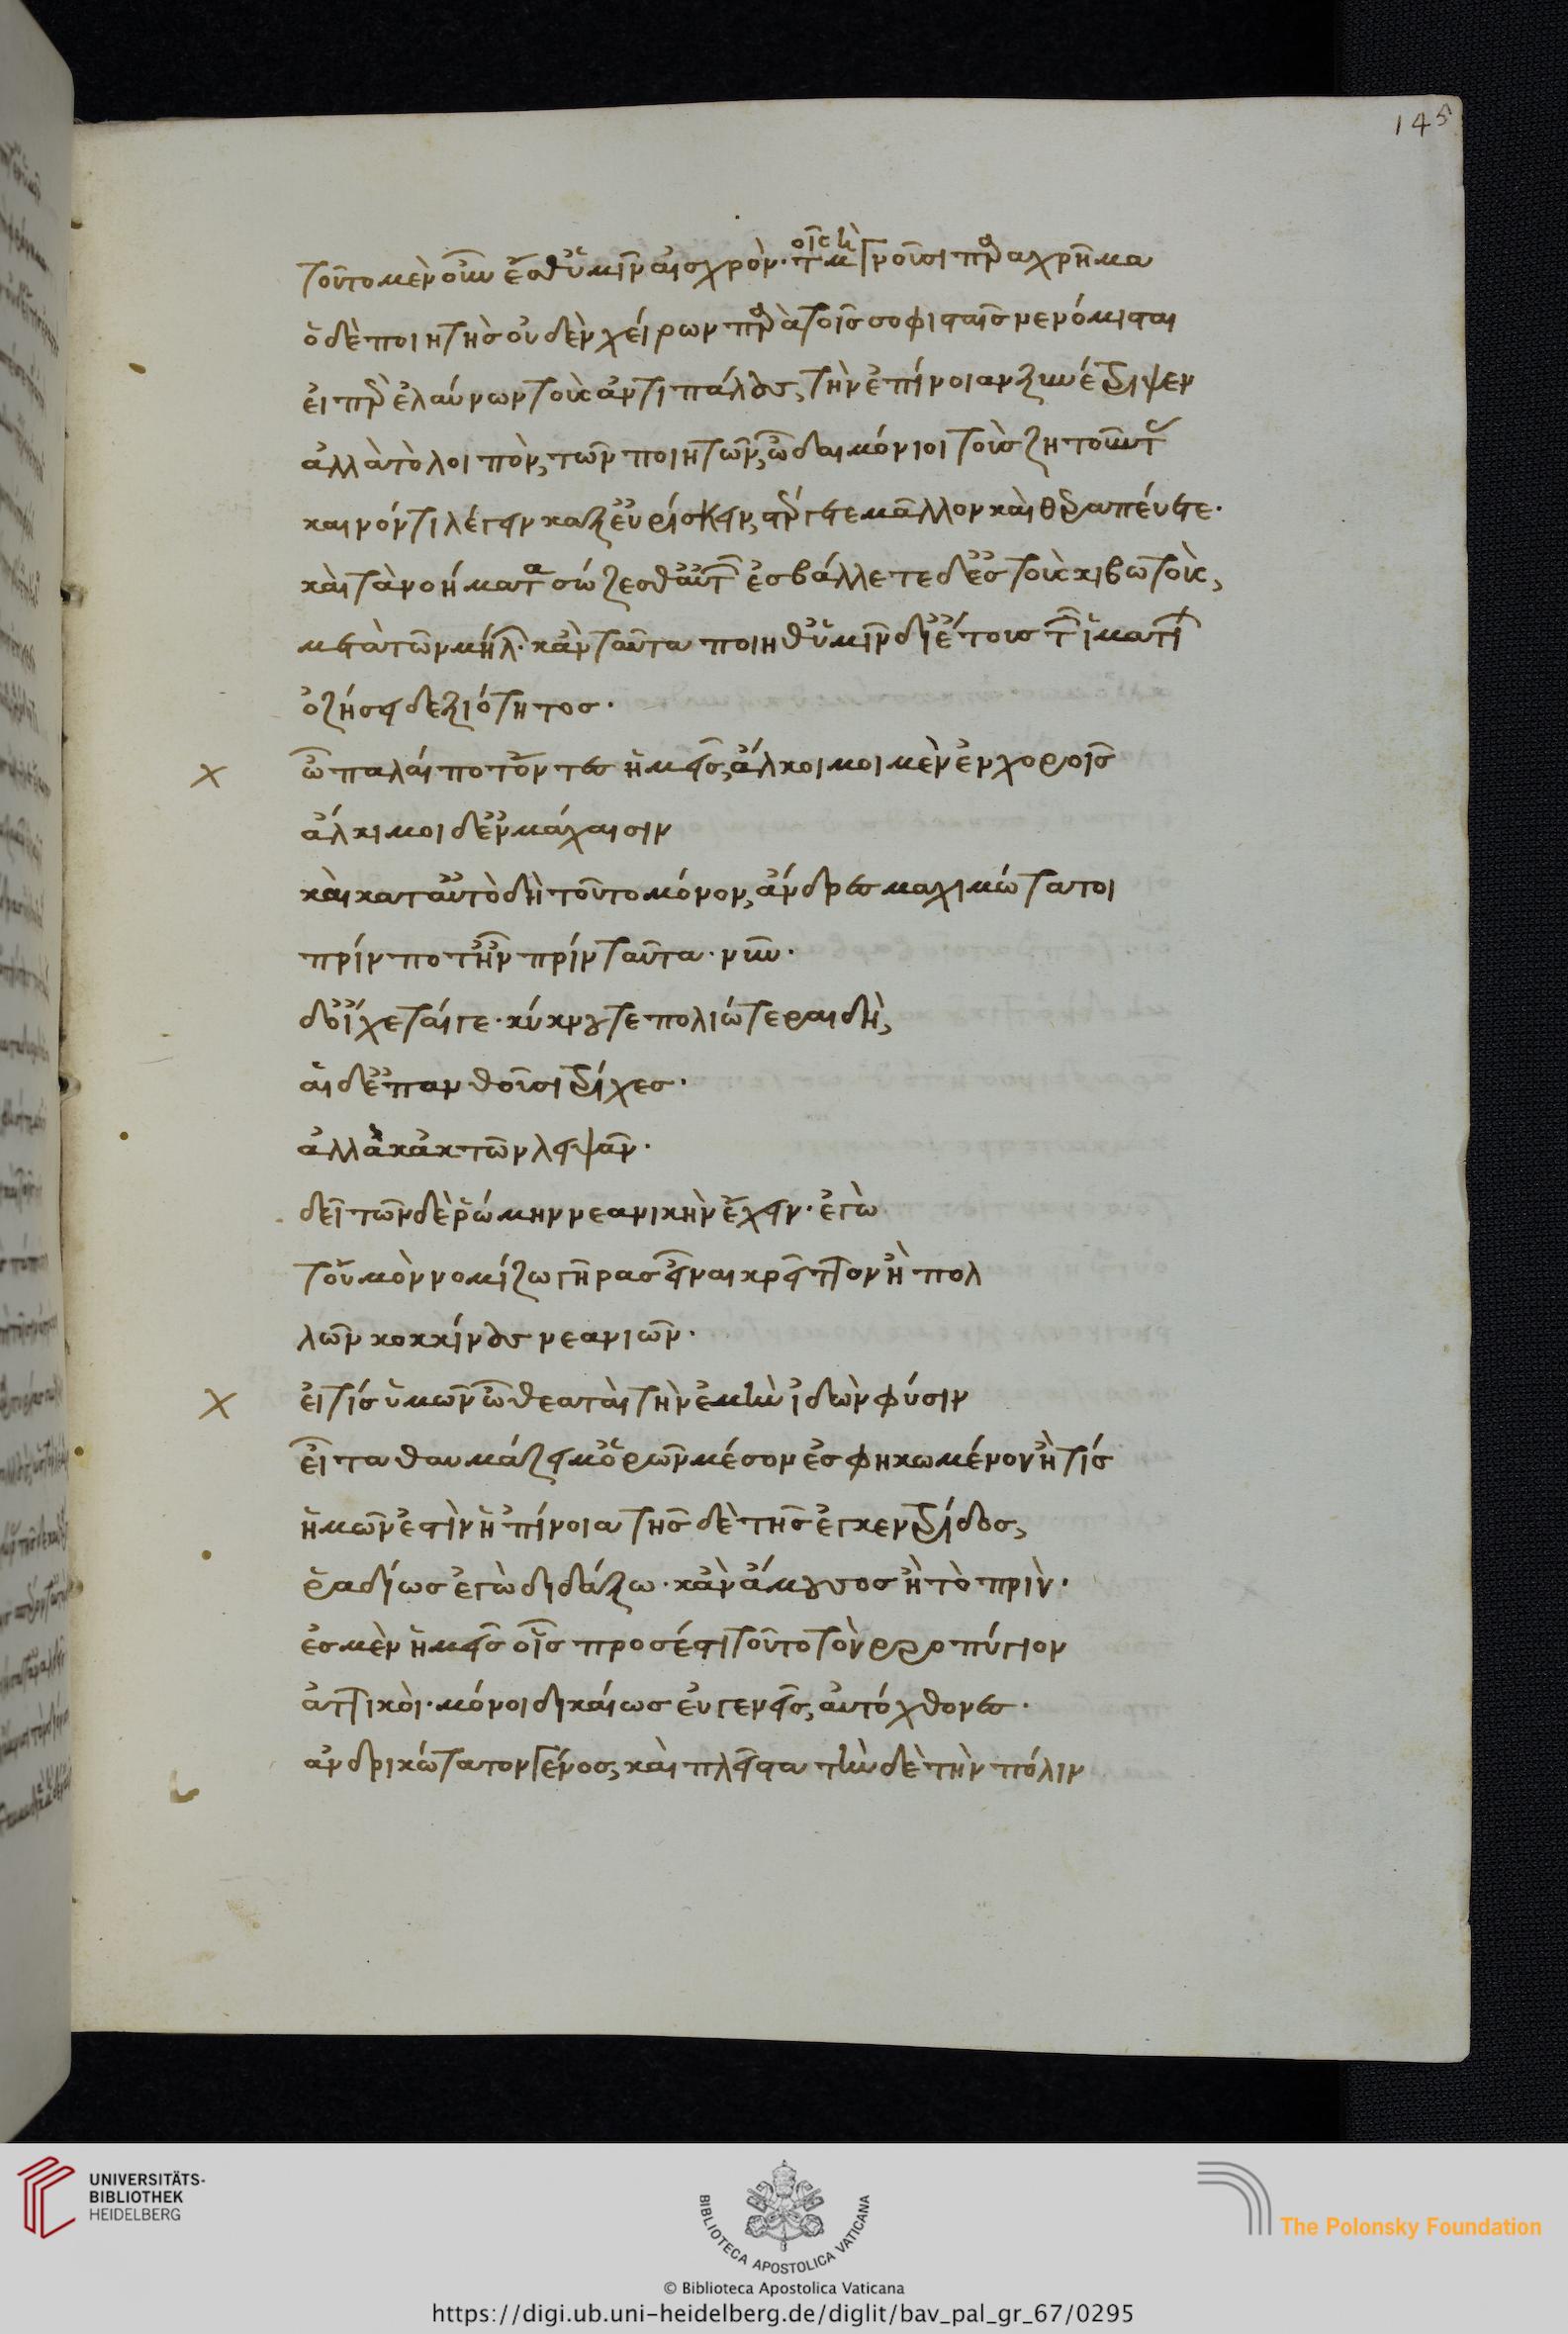 145
τοῦτο μὲν οὖν ἔσθ' ὑμῖν αἰσχρὸν· τοῖς μὴ γνοῦσι παραχρῆμα
ὁ δὲ ποιητὴς οὐδὲν χείρων παρὰ τοῖς σοφισταῖς νενόμισται
εἰ παρελαύνων τοὺς ἀντιπάλους, τὴν ἐπίνοιαν ξυνέτριψεν
ἀλλὰ τὸ λοιπὸν, τῶν ποιητῶν, ὦ δαιμόνιοι τοὺς ζητοῦντας
καινόν τι λέγειν κἀξευρίσκειν, στέργετε μᾶλλον καὶ θεραπεύετε·
καὶ τὰ νοήματα σώζεσθ' αὐτῶν ἐσβάλλετε δ' ἐς τοὺς κιβωτοὺς,
μετὰ τῶν μήλων· κἂν ταῦτα ποιῆθ' ὑμῖν δι' ἔτους τῶν ἱματίων
ὀζήσει δεξιότητος·
ὦ πάλαι ποτ' ὄντες ἡμεῖς, ἄλκιμοι μὲν ἐν χοροῖς
ἄλκιμοι δ' ἐν μάχαισιν
καὶ κατ' αὐτὸ δὴ τοῦτο μόνον, ἄνδρες μαχιμώτατοι
πρίν ποτ' ἦν πρίν ταῦτα· νῦν·
δ' οἴχεταί γε· κύκνου τε πολιώτεραι δὴ,
αἱ δ' ἐπανθοῦσι τρίχες·
ἀλλὰ κἀκ τῶν λειψάνων·
δεῖ τῶνδε ῥώμην νεανικὴν ἔχειν· ἐγὼ
τοὐμὸν νομίζω γῆρας εἶναι κρεῖττον ἢ πολ
λῶν κοκκίνους νεανιῶν·
εἴ τις ὑμῶν ὦ θεαταὶ τὴν ἐμὴν ἰδὼν φύσιν
εἶτα θαυμάζει μ' ὁρῶν μέσον ἐσφηκωμένον ἤ τίς
ἡμῶν ἐστὶν ἡ 'πίνοια τῆσδε τῆς ἐγκεντρίδος,
ῥαδίως ἐγὼ διδάξω· κἂν ἄμουσος ἢ τὸ πρὶν·
ἐσμὲν ἡμεῖς οἷς πρόσεστι τοῦτο τὸν ὀρροπύγιον
ἀττικοὶ· μόνοι δικαίως εὐγενεῖς, αὐτόχθονες·
ἀνδρικώτατον γένος, καὶ πλεῖστα τήνδε τὴν πόλιν
UNIVERSITÄTS-
BIBLIOTHEK
HEIDELBERG
BIBLIOTECA APOSTOLICA VATICANA
The Polonsky Foundation
© Biblioteca Apostolica Vaticana
https://digi.ub.uni-heidelberg.de/diglit/bav_pal_gr_67/0295